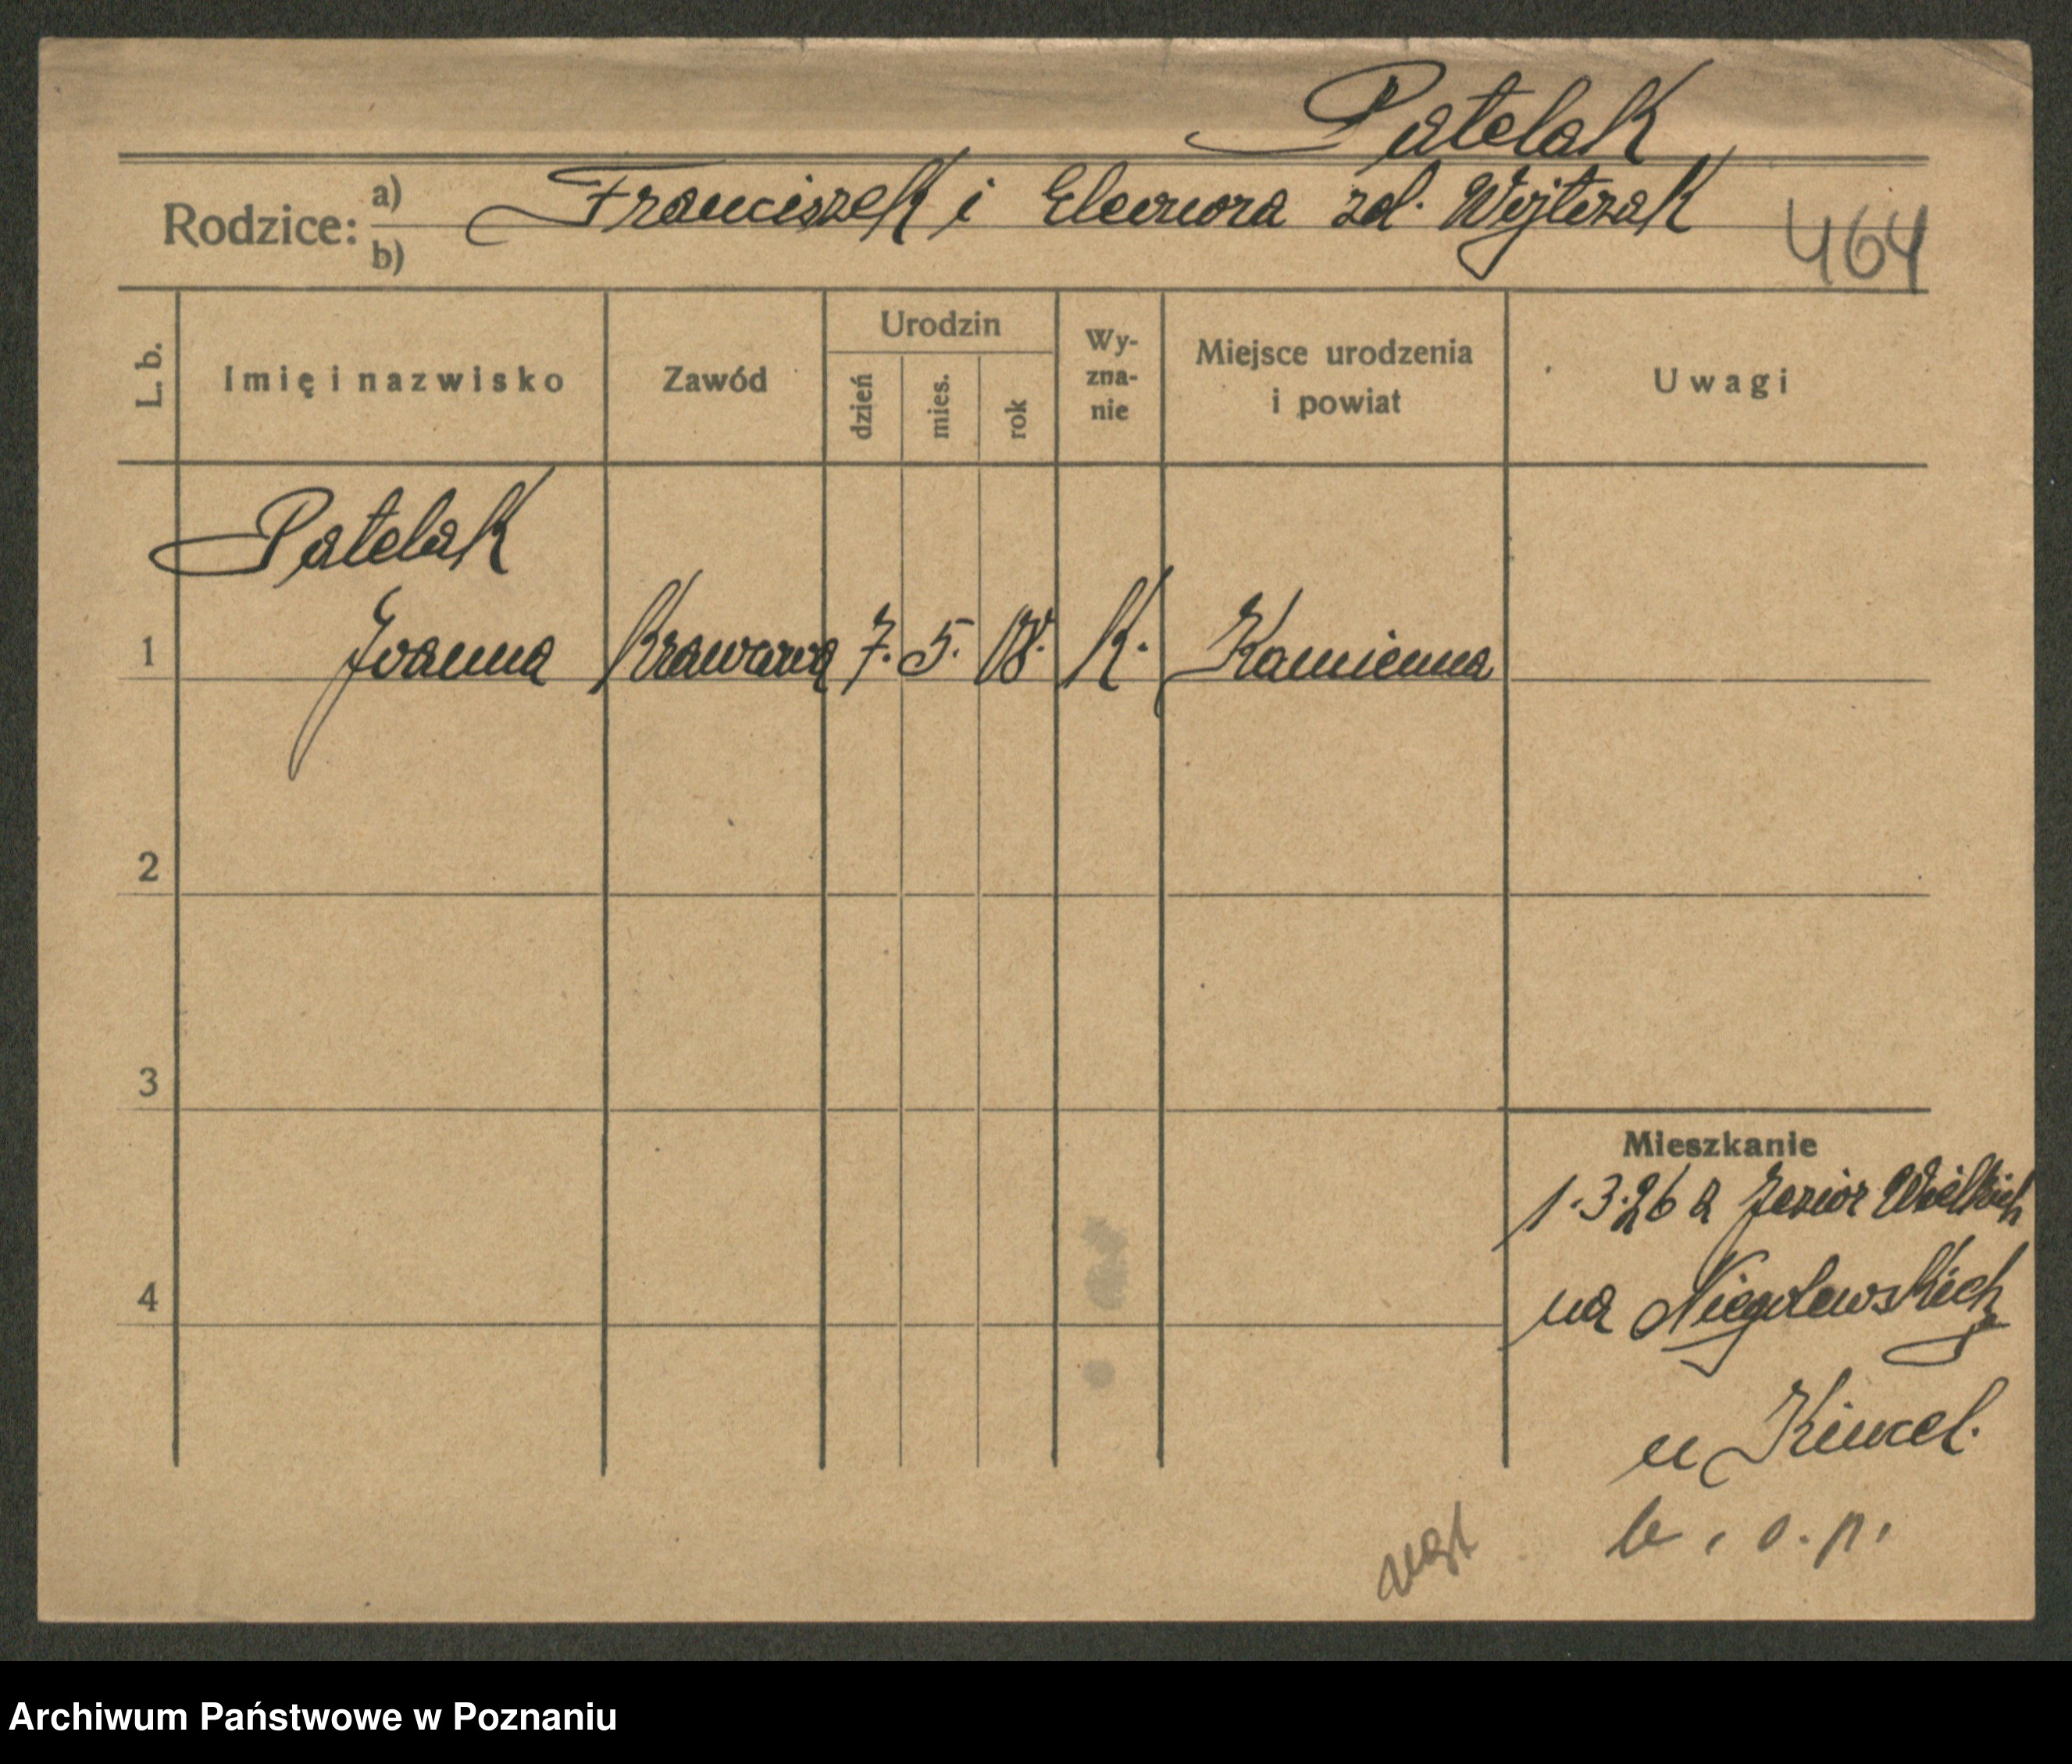 Patelak
Rodzice: a) Franciszek i Eleonora zd. Wojtczak
b)
464
L. b.
Imię i nazwisko
Zawód
Urodzin
dzień
mies.
rok
Wy-
zna-
nie
Miejsce urodzenia
i powiat
Uwagi
Patelak
1 Joanna Krawcowa 7. 5. 08. K. Kamienna
2
3
4
Mieszkanie
1.3.26 z Jezior Wielkich
na Niegolewskich
u Kincel.
b. o. p.
Archiwum Państwowe w Poznaniu